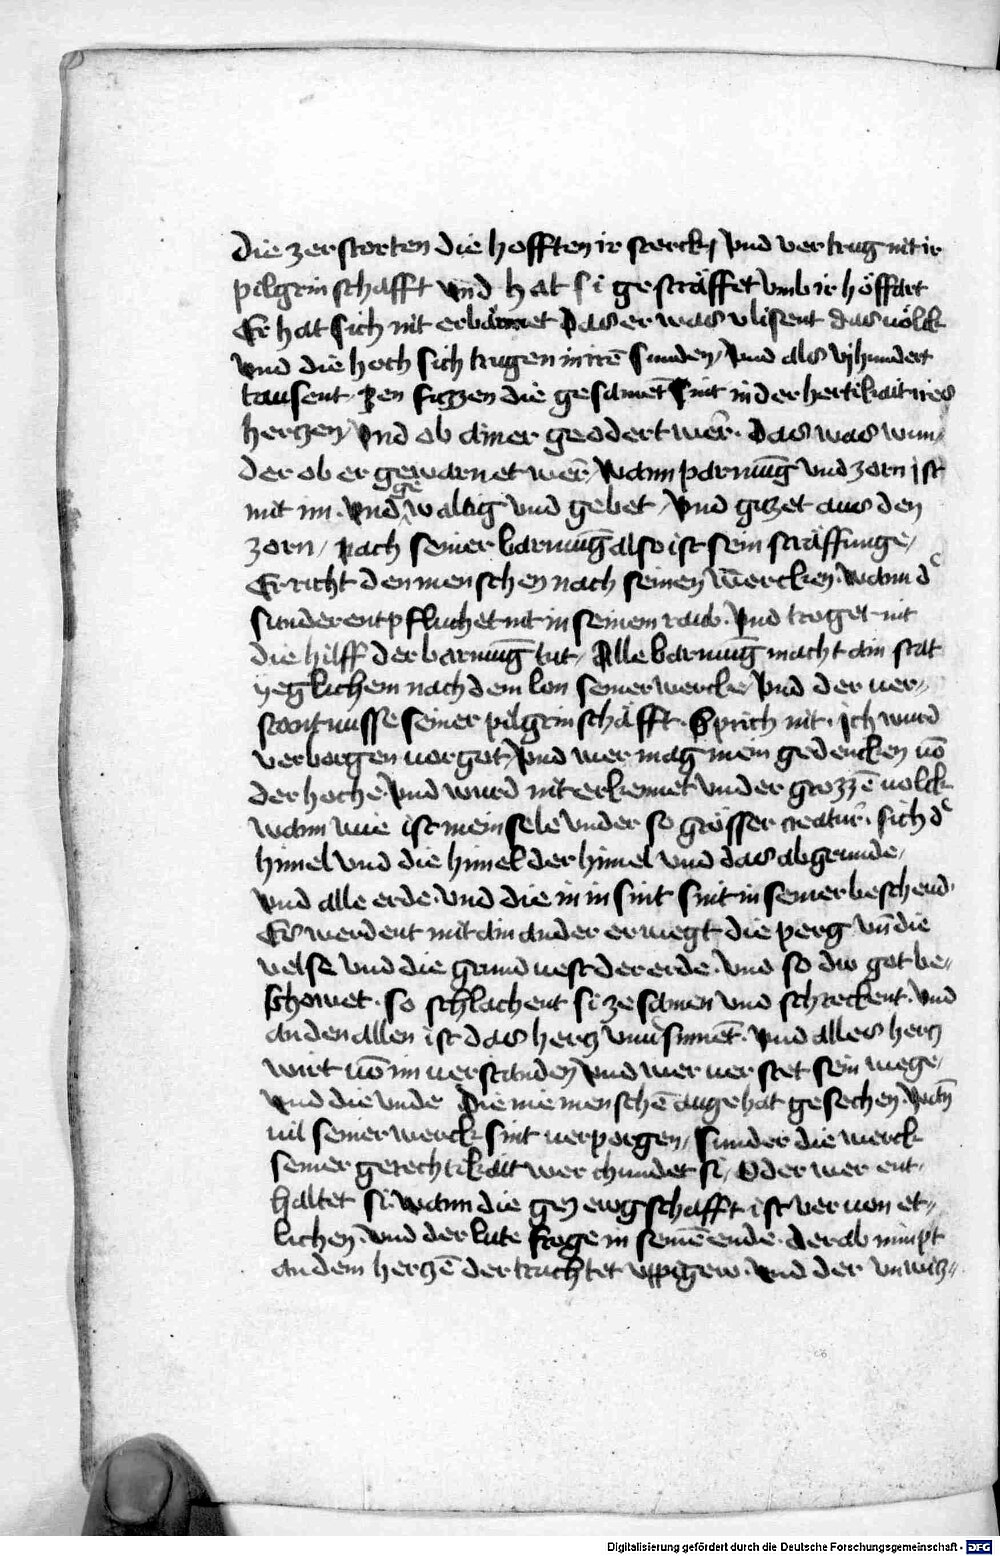 die zerstorten die hofften ir sterck / vnd vertrug nit ir
pilgrinschafft vnd hat si gesträffet vmb ir höffart
Er hat sich nit erbarmet Das er was vlisent das uolck
vnd die hoch sich trugen in irē sunden / vnd als vjhundert
tausent den fuzzen die gesamēt sint in der hertikait ires
hertzen / vnd ob ainer geodert wer̄ . Das was wun/
der ob er gewarnet wer̄ / Wann parmūg vnd zorn ist
mit im . vnd gewaltig vnd gebet / vnd guzet aus den
zorn / nach seiner barmūg also ist sein sträffunge /
Er richt den menschen nach seinen wercken . Wann d
sunder entpfliuchet nit in seinem raub . vnd troget nit
die hilff der barmūg tut / Alle barmūg macht ain stat
yeglichem nach dem lon seiner wercke / vnd der uer//
stantnusse seiner pilgrinschäfft . Sprich nit . ich wurd
verborgen uor got / vnd wer mag mein gedencken uō
der hoche . vnd wurd nit erkennet vnder grozzē uolck
wann wie ist mein sele vnder so grösser creatur̄ . sich d
himel vnd die himel der himel vnd das abgrunde /
vnd alle erde . vnd die in in sint sint in seiner beschend .
Es werdent mit ain ander erwegt die perg vn̄ die
velse vnd die grund uest der erde . vnd so diu got be//
schowet . so schlachent si zesamen vnd schreckent . vnd
an den allen ist das hertz vnusinnēt . vnd alles hertz
wirt uō im uerstanden vnd wer uerstet sein wege /
vnd die vnde Die nie menschē auge hat gesechen . wān
uil seiner werck sint uerporgen / sunder die werck
seiner gerechtikait wer chundet si / Oder wer ent/
haltet si . wann die gezewgschafft ist ver uon et//
lichen . vnd der lute froge in seinē ende . der ab nimpt
an dem hertzē der trachtet vppigew . vnd der vnwitz//
Digitalisierung gefördert durch die Deutsche Forschungsgemeinschaft - DFG